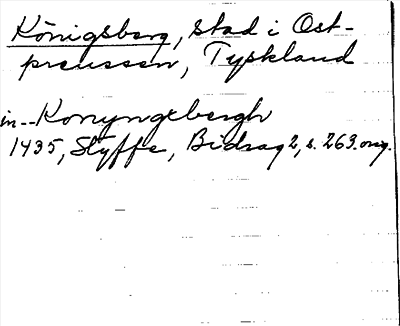 Königsberg, stad i Ost-
preussen, Tyskland
in -- Konyngsbergh
1435, Styffe, Bidrag 2, s. 263. orig.